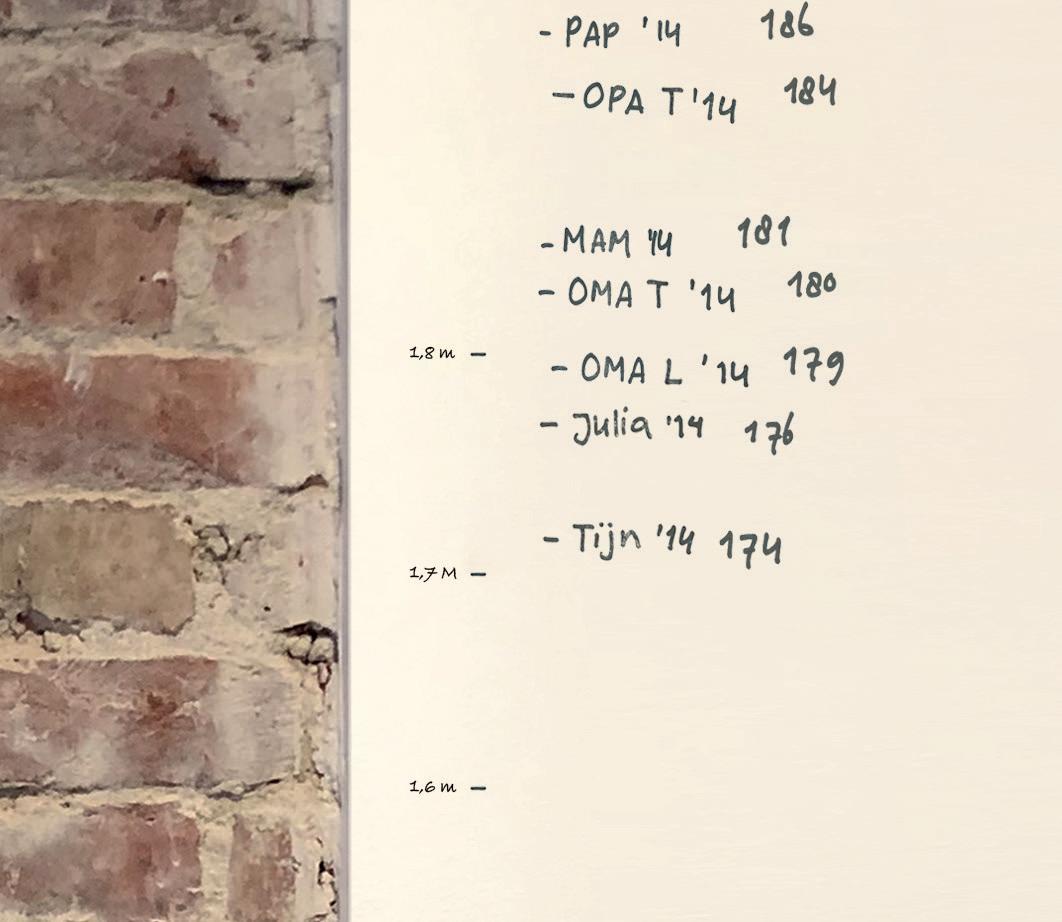 - PAP '14 186
- OPA T '14 184
- MAM '14 181
- OMA T '14 180
1,8 m -
- OMA L '14 179
- Julia '14 176
- Tijn '14 174
1,7 M -
1,6 m -